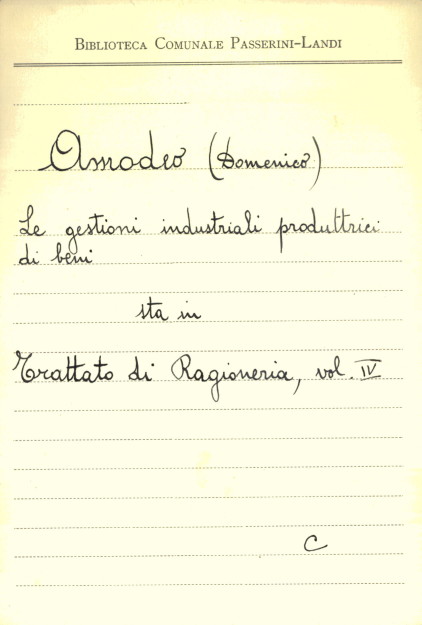 BIBLIOTECA COMUNALE PASSERINI-LANDI
Amodeo (Domenico)
Le gestioni industriali produttrici
di beni
sta in
Trattato di Ragioneria, vol. IV
C